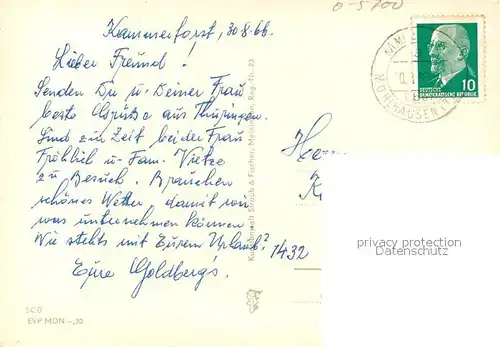 0-5700
Kammerforst, 30.8.66.
Lieber Freund!
Senden Dir u. Deiner Frau
beste Grüße aus Thüringen.
Sind zur Zeit bei der Frau
Fröhlich u. Fam. Vietze
zu Besuch. Brauchen
schönes Wetter, damit wir
was unternehmen können
Wie stehts mit Eurem Urlaub?
Eure Goldberg's.
1432
Herrn
K
DEUTSCHE
DEMOKRATISCHE REPUBLIK
10
MÜHLHAUSEN
Straub & Fischer, Meiningen, Reg.-Nr. 23
EVP MDN -,20
privacy protection
Datenschutz